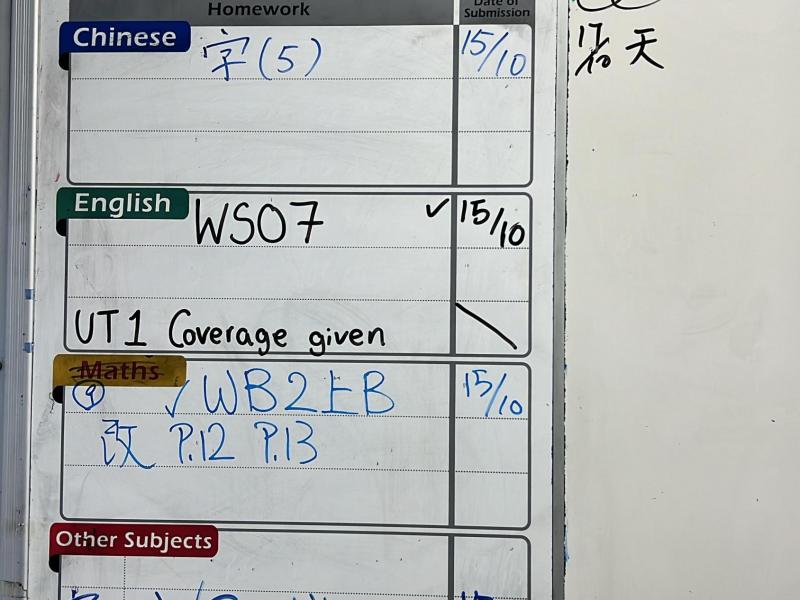 Homework
Date of Submission
Chinese
字(5) 15/10
17/10 天
English
WS07 ✓ 15/10
UT1 Coverage given
Maths
④ ✓ WB2上B 15/10
改 P.12 P.13
Other Subjects